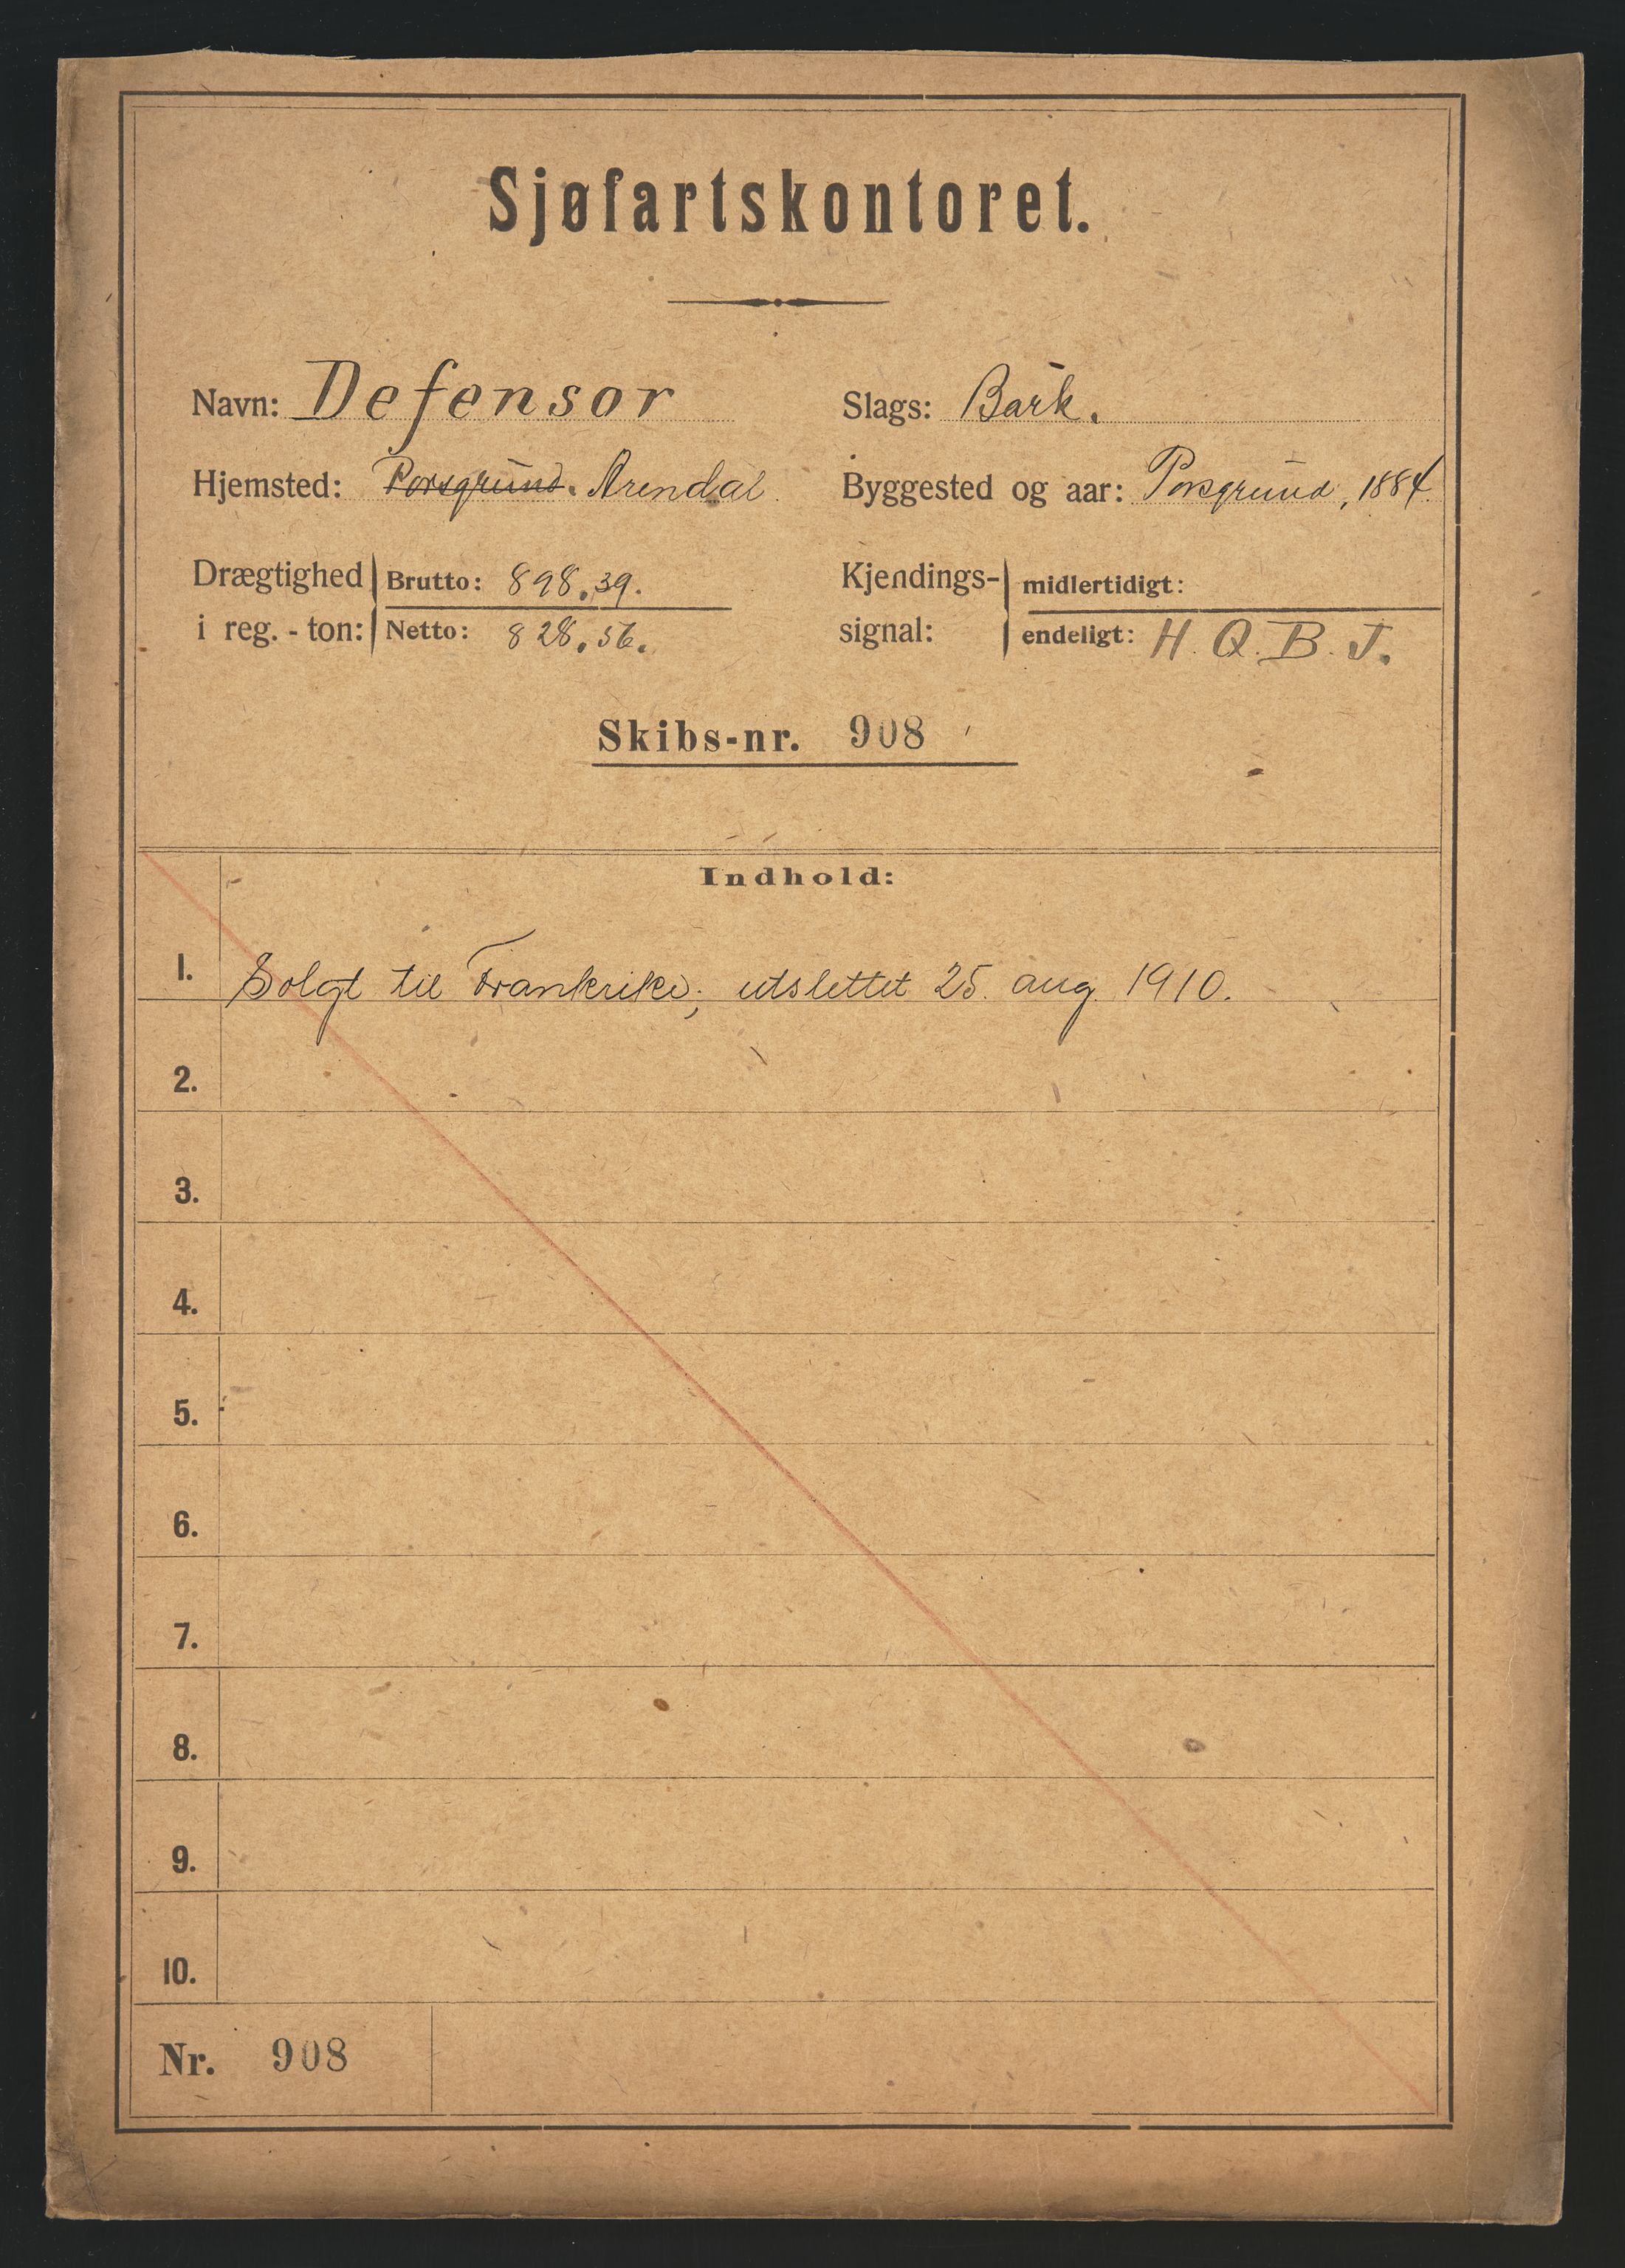 Sjøfartskontoret.
Navn: Defensor Slags: Bark.
Hjemsted: Porsgrund. Arendal Byggested og aar: Porsgrund, 1884
Drægtighed i reg.-ton: Brutto: 898.39. Kjendings-signal: midlertidigt:
Netto: 828.56. endeligt: H. Q. B. J.
Skibs-nr. 908
Indhold:
1. Solgt til Frankrike; utslettet 25. aug. 1910.
2.
3.
4.
5.
6.
7.
8.
9.
10.
Nr. 908